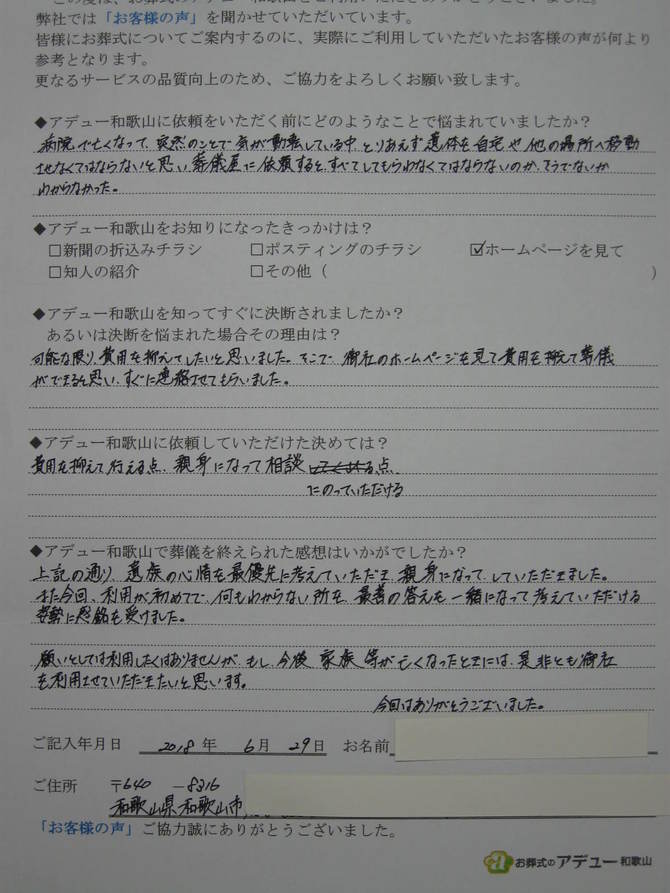 弊社では「お客様の声」を聞かせていただいています。
皆様にお葬式についてご案内するのに、実際にご利用していただいたお客様の声が何より
参考となります。
更なるサービスの品質向上のため、ご協力をよろしくお願い致します。
◆アデュー和歌山に依頼をいただく前にどのようなことで悩まれていましたか？
病院で亡くなって、突然のことで気が動転している中、とりあえず遺体を自宅や他の場所へ移動
させなくてはならないと思い、葬儀屋に依頼すると、すべてしてもらわなくてはならないのか、そうでないか
わからなかった。
◆アデュー和歌山をお知りになったきっかけは？
□新聞の折込みチラシ □ポスティングのチラシ ☑ホームページを見て
□知人の紹介 □その他（ ）
◆アデュー和歌山を知ってすぐに決断されましたか？
あるいは決断を悩まれた場合その理由は？
可能な限り、費用を抑えてしたいと思いました。そこで、御社のホームページを見て費用を抑えて葬儀
ができると思い、すぐに連絡させてもらいました。
◆アデュー和歌山に依頼していただけた決めては？
費用を抑えて行える点、親身になって相談 点、
にのっていただける
◆アデュー和歌山で葬儀を終えられた感想はいかがでしたか？
上記の通り、遺族の心情を最優先に考えていただき、親身になって、していただきました。
また今回、利用が初めてで、何もわからない所を、最善の答えを一緒になって考えていただける
姿勢に感銘を受けました。
願いとしては利用したくはありませんが、もし、今後、家族等が亡くなったときには、是非とも御社
を利用させていただきたいと思います。
今回はありがとうございました。
ご記入年月日 2018年 6月 29日 お名前
ご住所 〒640 －8216
和歌山県和歌山市
「お客様の声」ご協力誠にありがとうございました。
お葬式のアデュー和歌山